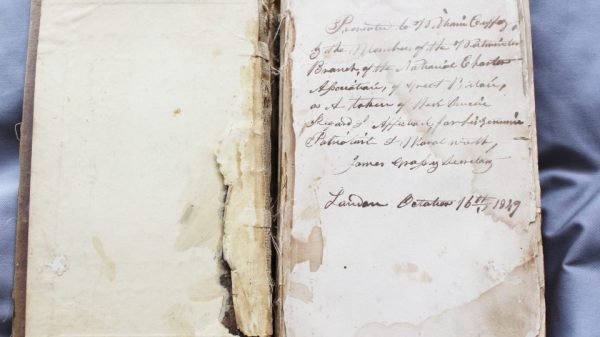 Presented to William Cuffay
by the Members of the Westminster
Branch, of the National Charter
Association, of Great Britain,
as A token of their Sincere
Regard & Affection, for his Genuine
Patriotism & Moral worth,
James Grassby Secretary
London October 16th 1849